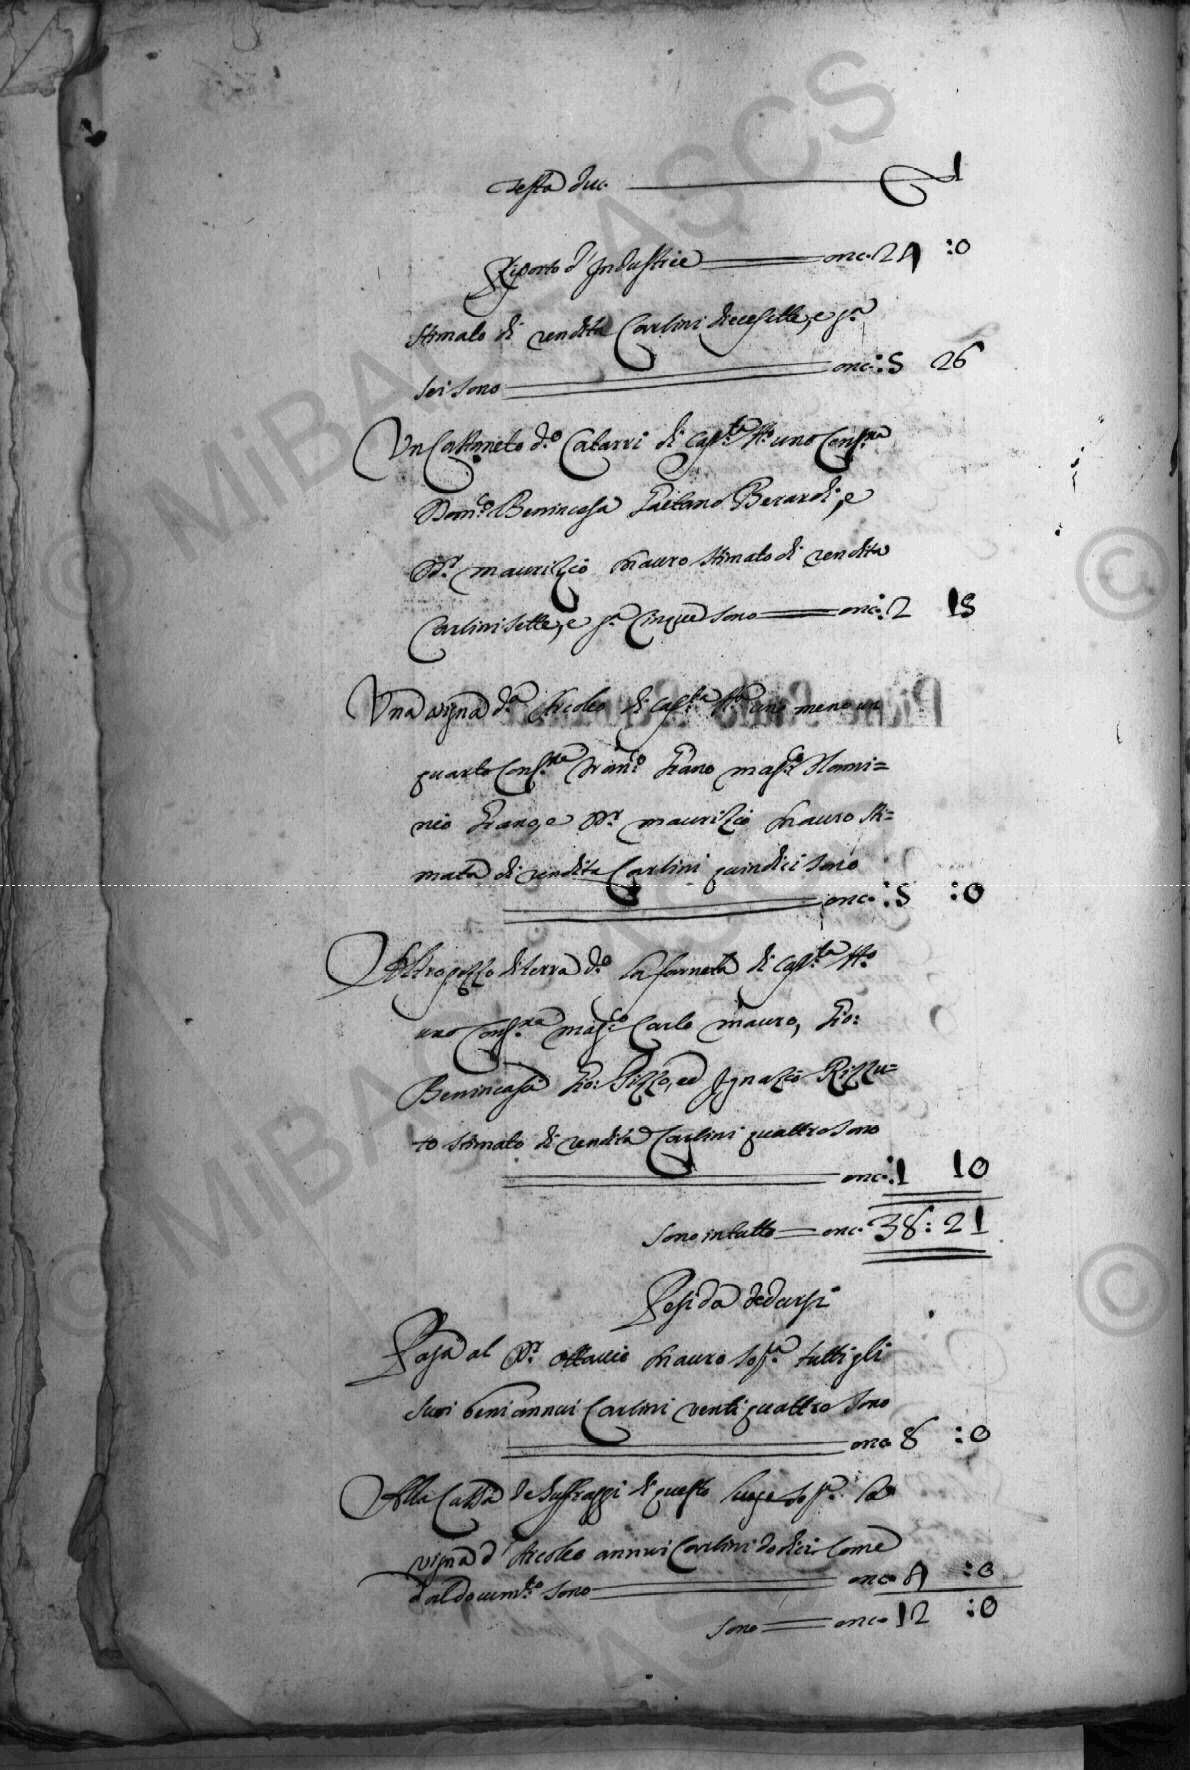 resta duc. 1
Riporto d'Industrie onc. 24 :0
stimato di rendita Carlini diecesette, e g.ª
sei sono onc.: 5 26
Un Castaneto d.º Catarri di cap.tà t.º uno Conf.na
Dom.co Benincasa Gaetano Berardi, e
D.r Maurizio Mauro stimato di rendita
Carlini sette, e g.ª Cinque sono onc.: 2 15
Una vigna d.ª di cap.tà uno meno un
quarto Conf.na Fran.co mag.co
nio e D.r Maurizio Mauro sti=
mata di rendita Carlini quindici sono
onc.: 5 :0
Altro pezzo di terra d.º la farneta di cap.tà t.º
uno Conf.na mag.co Carlo Mauro, Gio:
Benincasa Gio: Pizzo, ed Ignazio Rizzu=
to stimato di rendita Carlini quattro sono
onc.: 1 10
Sono in tutto onc. 38: 21
Pesi da dedursi
Paga al D.r Ottavio Mauro sop.ª tutti gli
suoi beni annui Carlini venti quattro sono
onc. 8 :0
Alla Cassa de Suffraggi di questo luogo sop.ª la
vigna d' annui Carlini dodici come
dal docum.to sono onc. 4 :0
Sono onc. 12 :0
© MiBAC - ASCS
© MiBAC - ASCS
ASCS
©
©